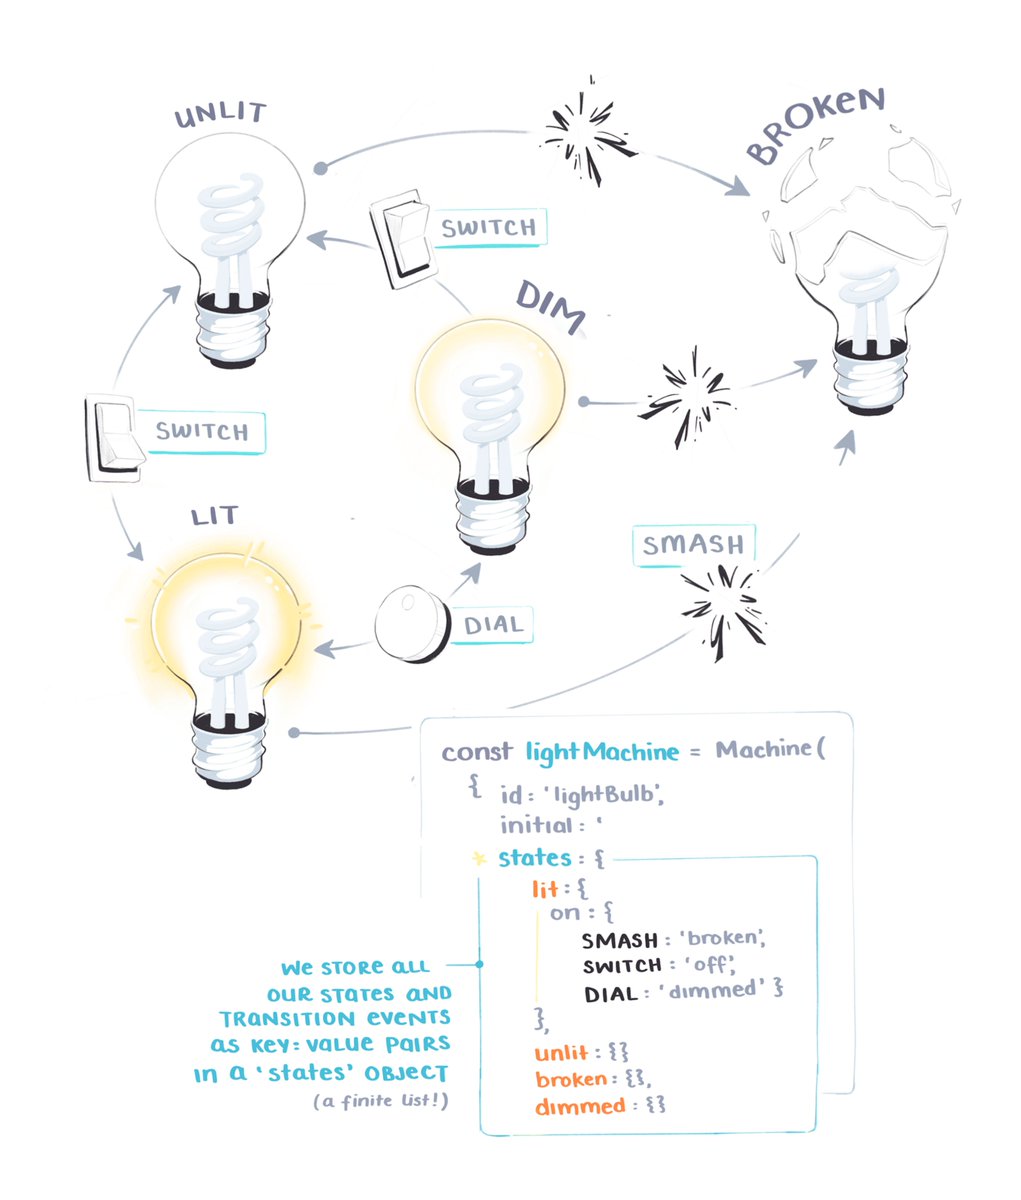 UNLIT
BROKEN
SWITCH
DIM
SWITCH
LIT
SMASH
DIAL
const lightMachine = Machine(
{ id: 'lightBulb',
initial: '
states: {
lit: {
on: {
SMASH: 'broken',
SWITCH: 'off',
DIAL: 'dimmed' }
},
unlit: {}
broken: {},
dimmed: {}
WE STORE ALL
OUR STATES AND
TRANSITION EVENTS
AS KEY: VALUE PAIRS
IN A 'states' OBJECT
(a finite list!)